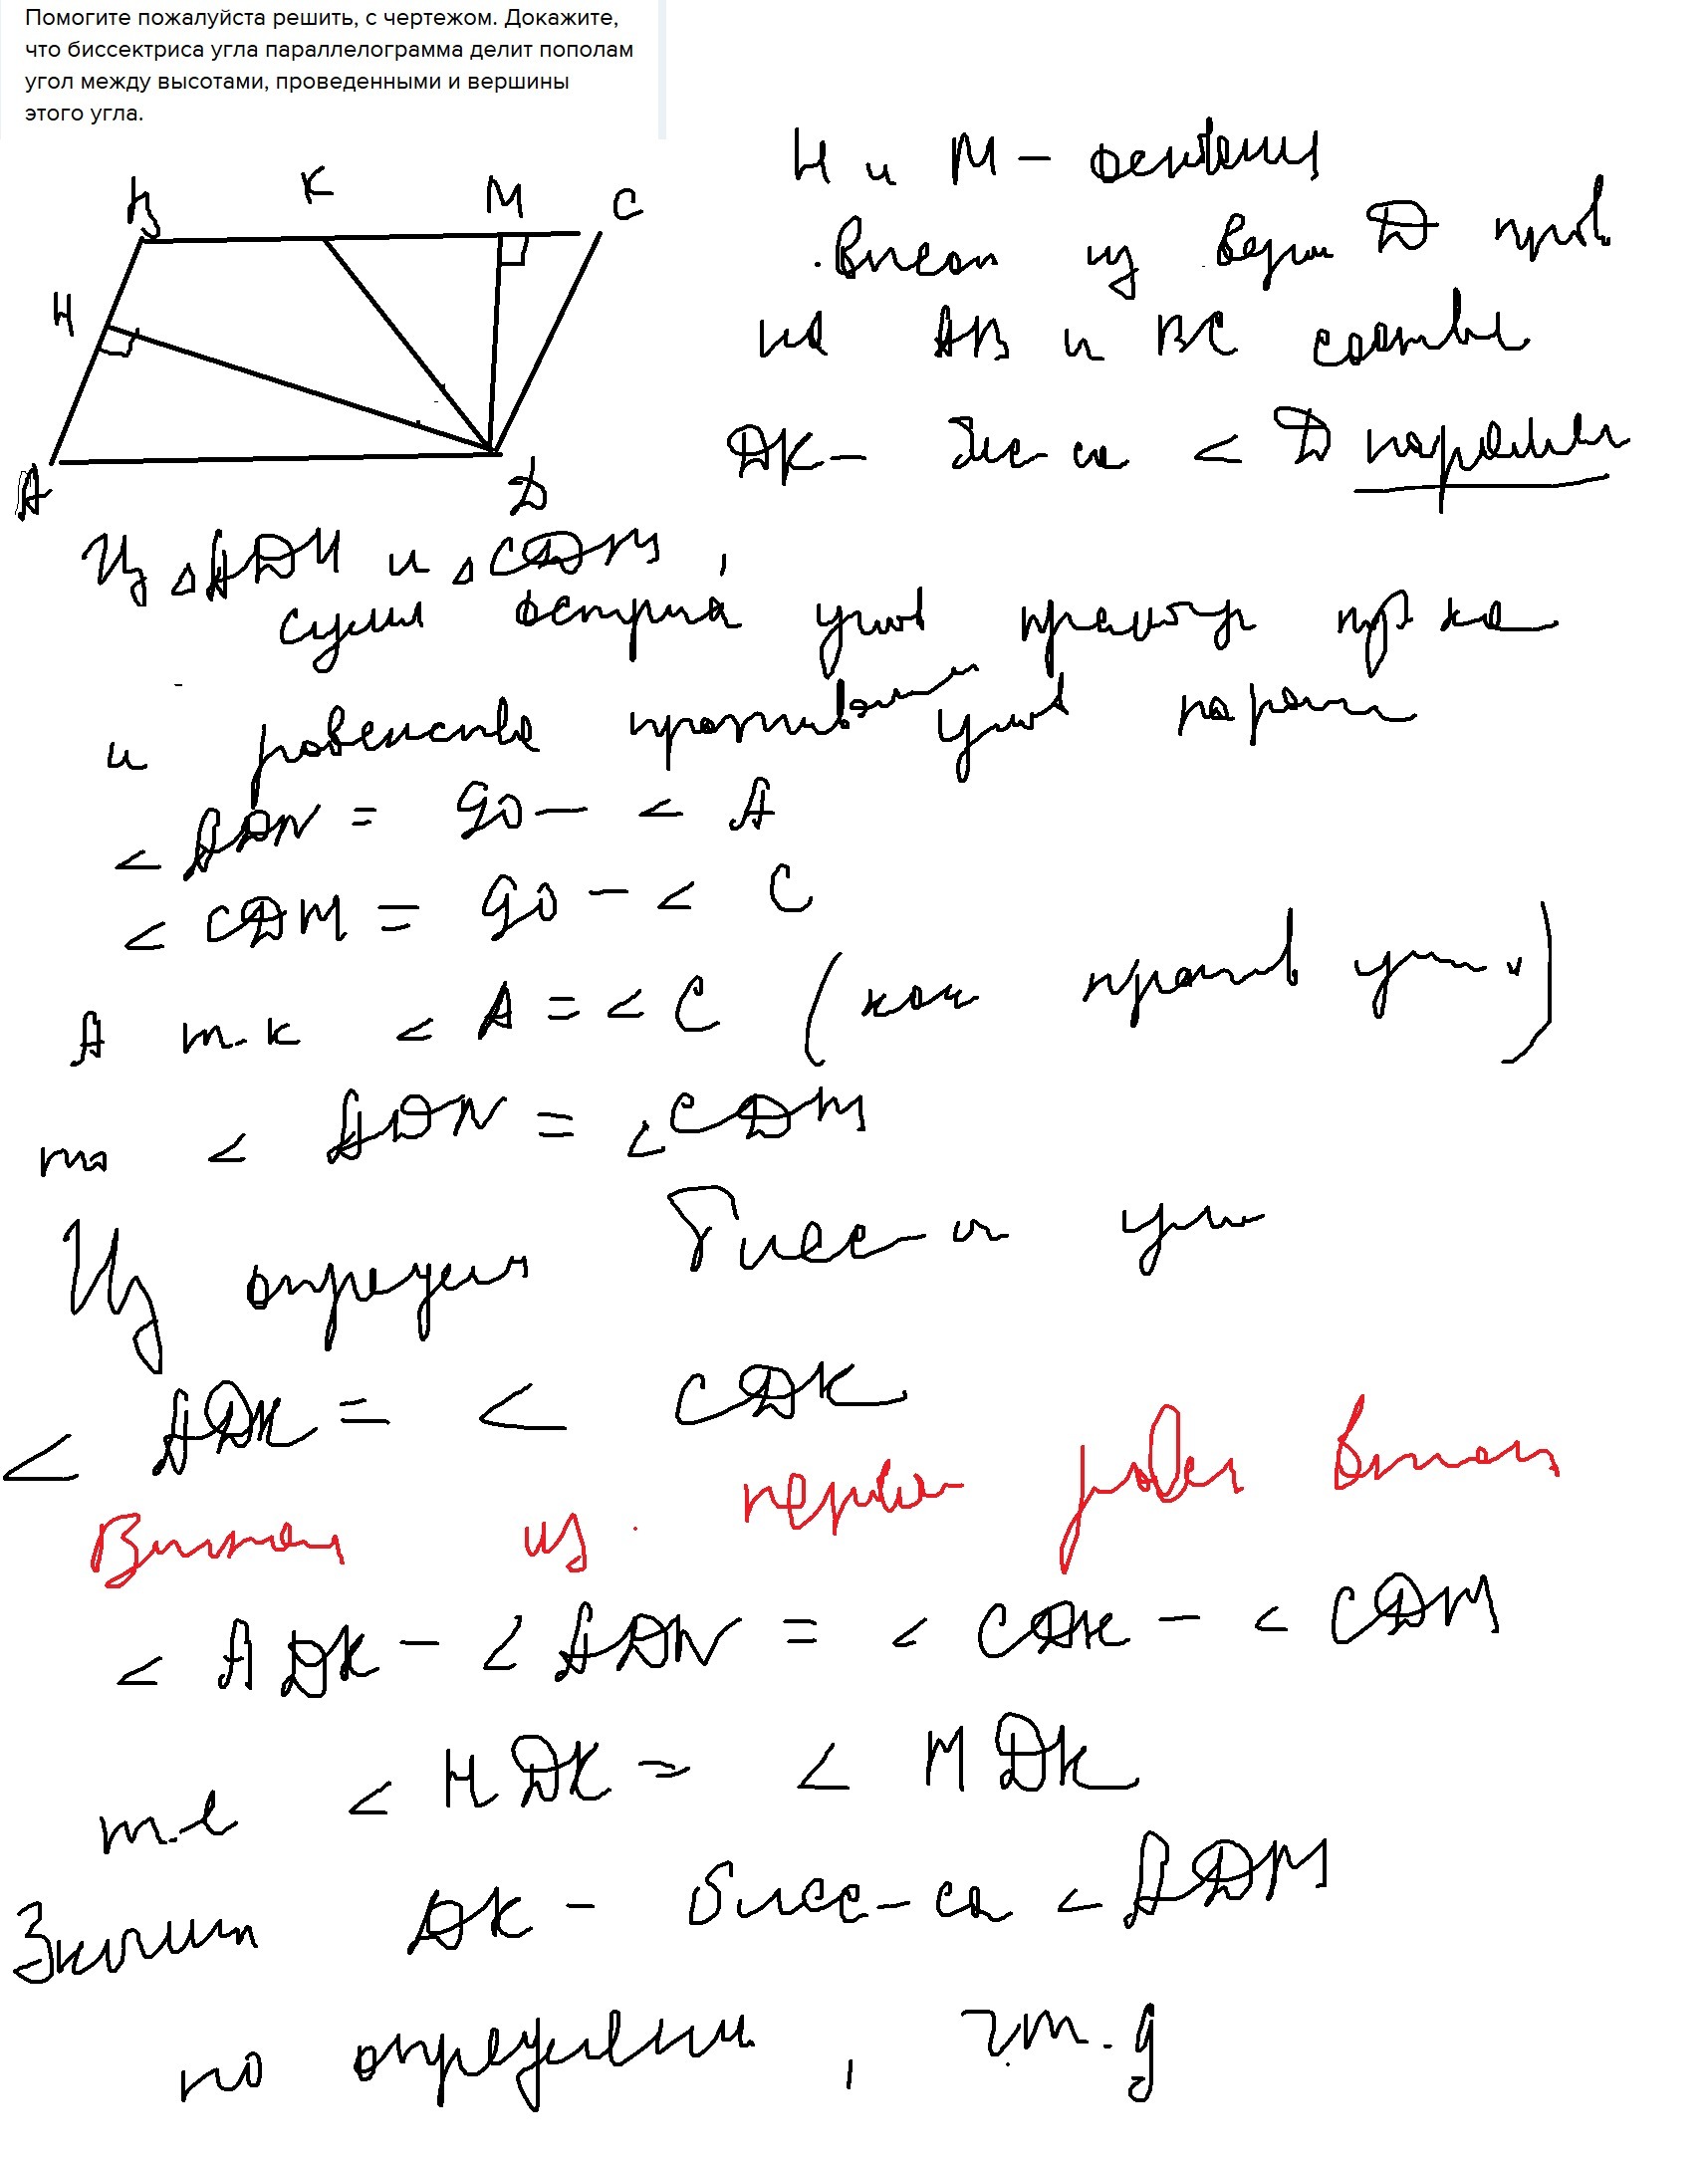 Помогите пожалуйста решить, с чертежом. Докажите,
что биссектриса угла параллелограмма делит пополам
угол между высотами, проведенными и вершины
этого угла.
H и M – основания
B K M C
высот из верш D пров
H
на AB и BC соотв
DK – бис-са < D паралл
A D
Из △ADH и △CDM,
сумм острых углов прямоуг
и равенства против углов парал
< ADN = 90 – < A
< CDM = 90 – < C
А т.к < A = < C (как против угл)
то < ADN = < CDM
Из определ бисс-и угл
< ADK = < CDK
Вычтем из первого равен второе
< ADK – < ADN = < CDK – < CDM
т.е < HDK = < MDK
Значит DK – бисс-са < ADM
по определени, чт.д